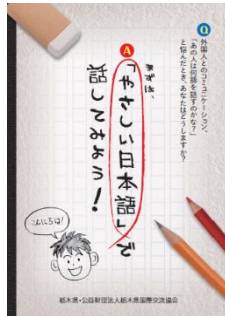 Q 外国人とのコミュニケーション、
「あの人は何語を話すのかな?」
と悩んだとき、あなたはどうしますか?
A まずは、
「やさしい日本語」で
話してみよう!
こんにちは!
栃木県・公益財団法人栃木県国際交流協会